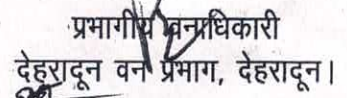 प्रभागीय वनाधिकारी
देहरादून वन प्रभाग, देहरादून।